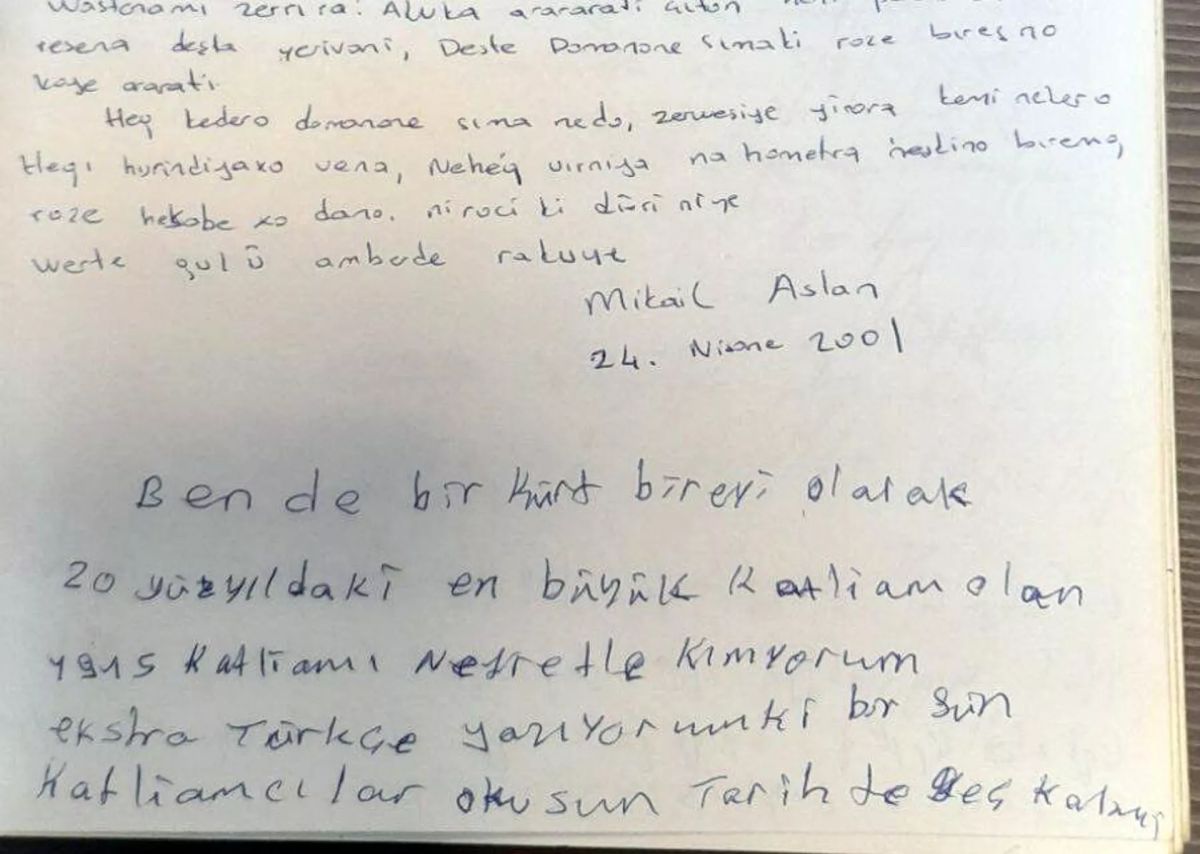 zerrira. Aluka arararati
resena deşta yerivani, Deste Domonone simaki roze bireşno
koye ararati.
Hey kedero domonone sima nedo, zerweşiye yinora kemi nekero
Heqi hurindiyaxo vena, Neheq virniya na hometra bireno,
roze hekobe xo dano. niroci ki düri niye
werte gulü ambode rakuye
Mikail Aslan
24. Nisone 2001
Ben de bir kürt bireyi olarak
20 yüzyıldaki en büyük katliam olan
1915 katliamı Nefretle kımyorum
ekstra Türkçe yazıyorumki bir gün
Katliamcılar okusun Tarihte geç